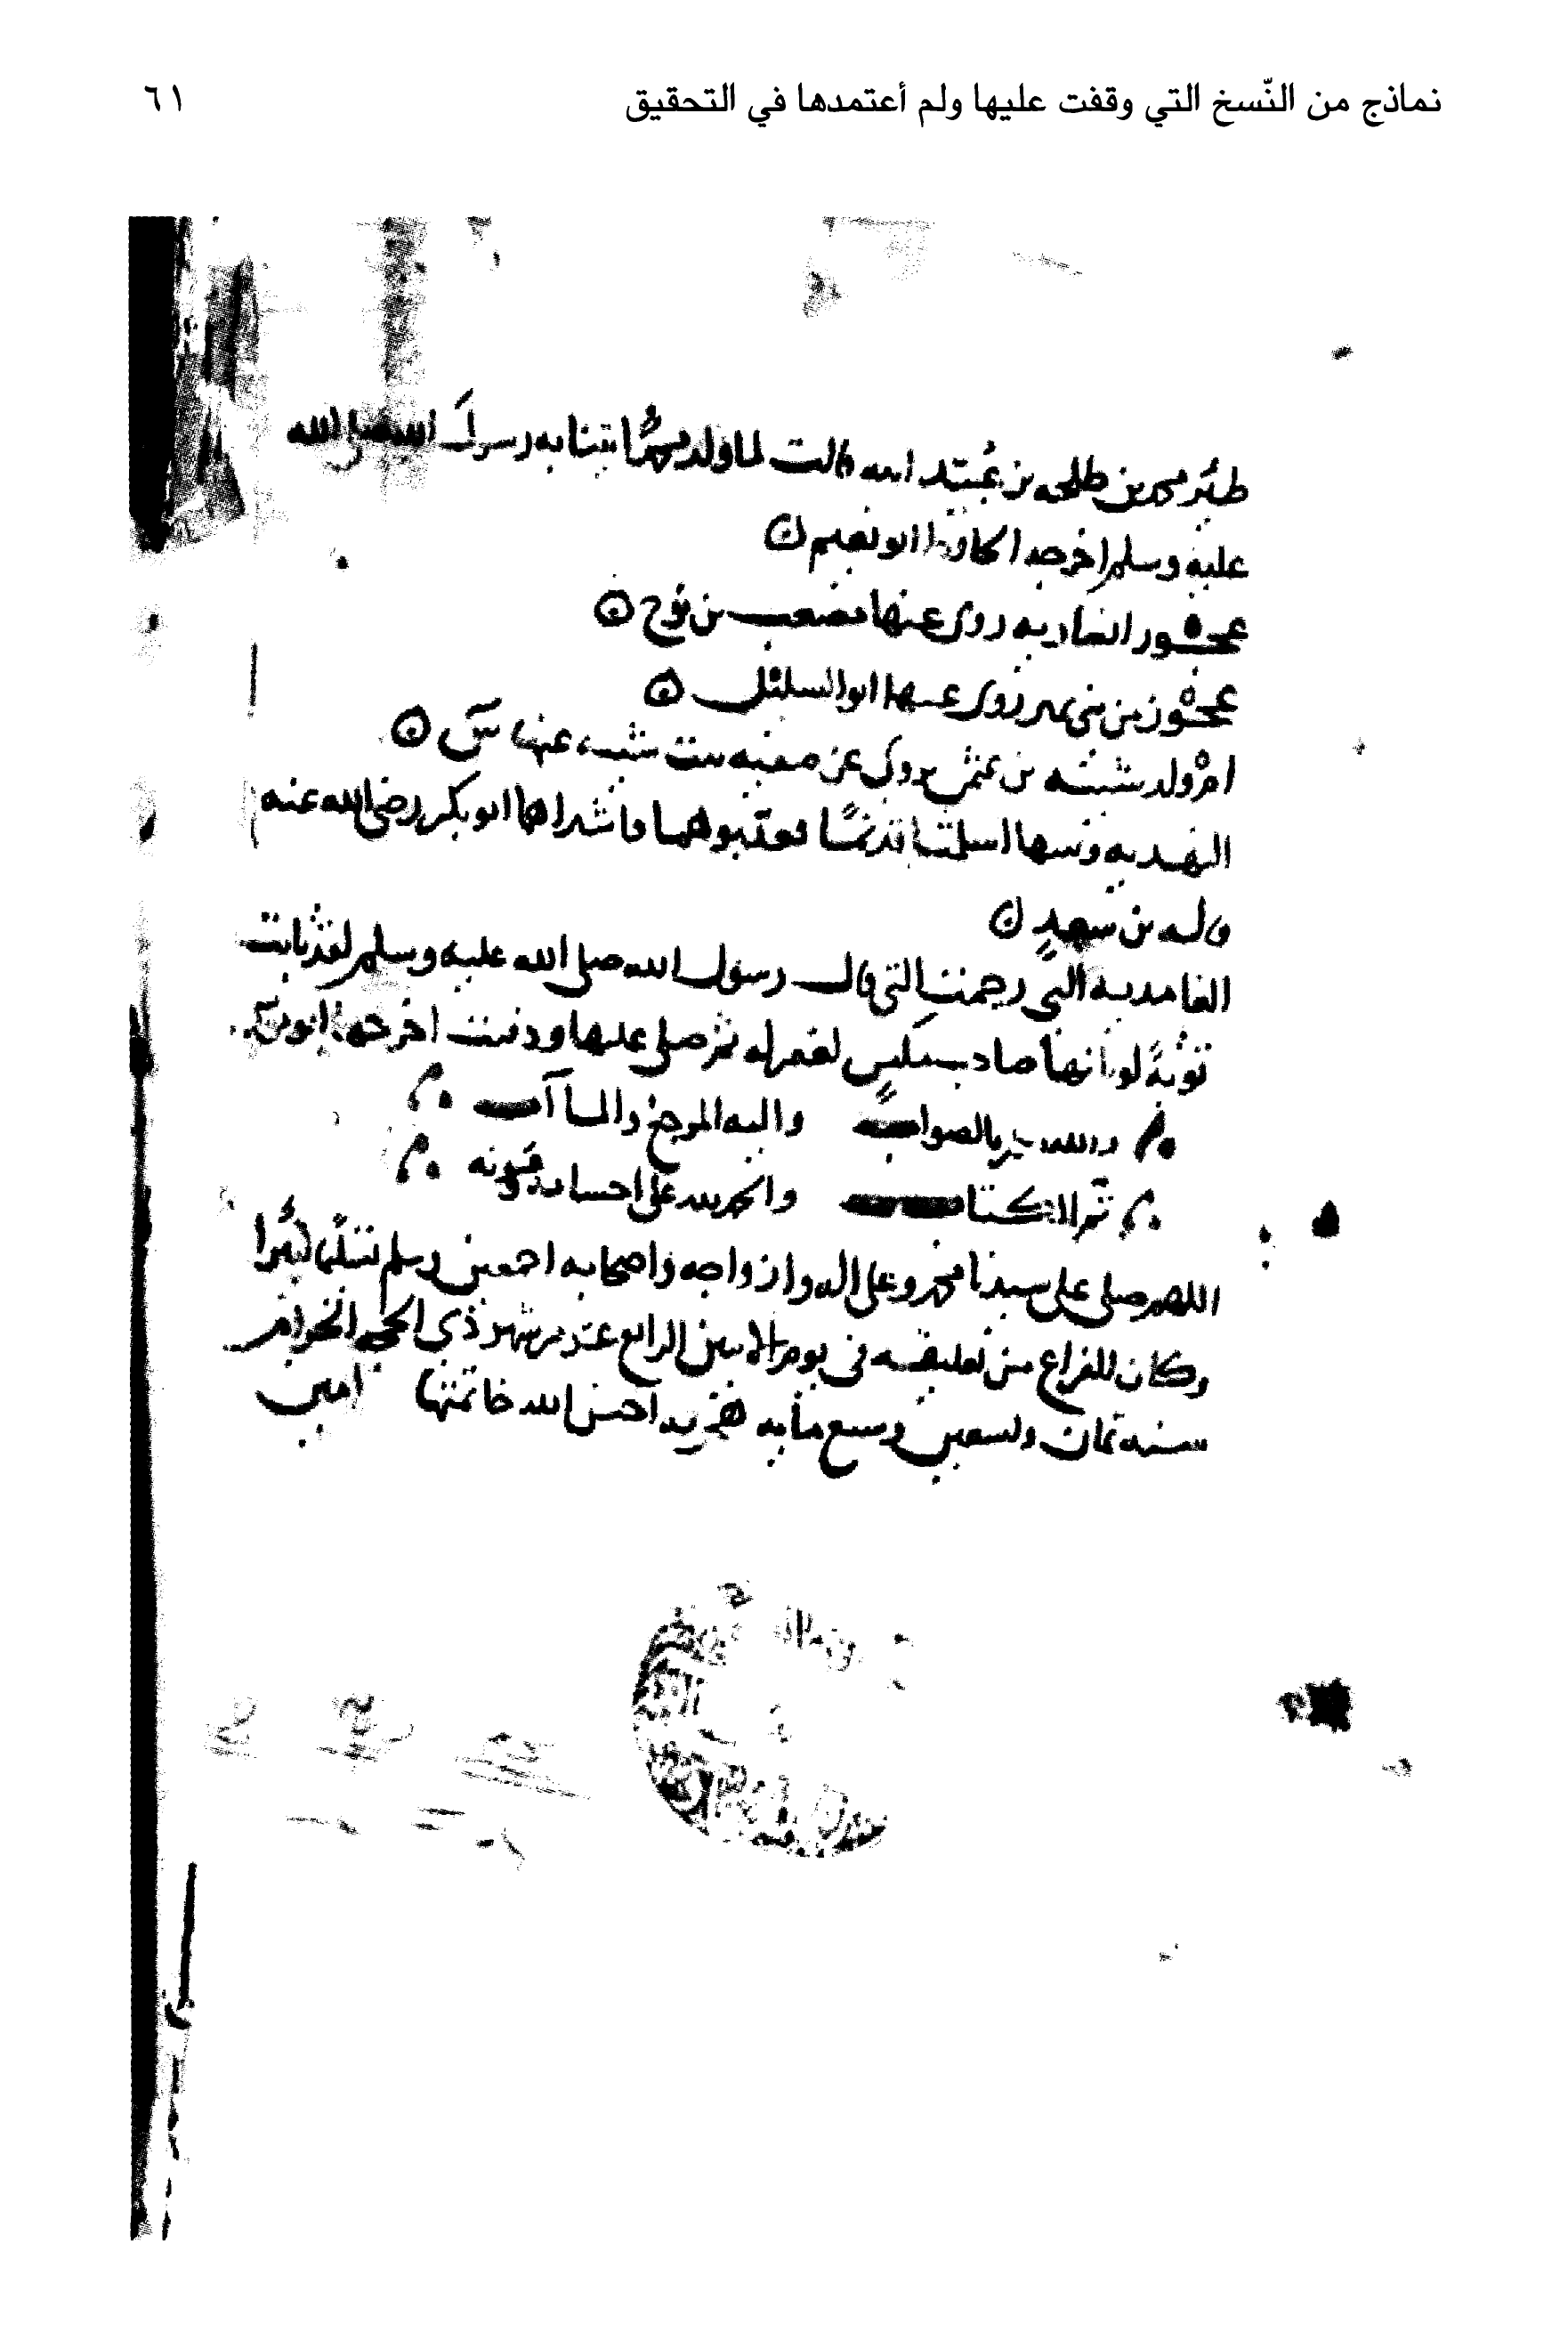 نماذج من النّسخ التي وقفت عليها ولم أعتمدها في التحقيق
٦١
ظئر محمد بن طلحه بن عُبيد الله قالت لما ولد محمدًا تينا به رسول الله صلى الله
عليه وسلم اخرجه ابو نعيم
عجوز انصاريه روى عنها مصعب بن نوح
عجوز من بني نمير روى عنها ابو السليل
ام ولد شيبه بن عثمن روى عن صفيه بنت شيبه عنها س
النهديه وبنتها اسلمتا قديمًا فعذبوهما فاشتراهما ابو بكر رضي الله عنه
قاله بن سعد
الغامديه التي رجمت التي قال رسول الله صلى الله عليه وسلم لقد تابت
توبةً لو انها صاحب مكس لغفر له ثم صلى عليها ودفنت اخرجه
والله بالصواب واليه المرجع والمآب
تم الكتاب والحمد لله على احسانه وعونه
اللهم صلى على سيدنا محمد وعلى اله وازواجه واصحابه اجمعين وسلم تسليمًا كثيرا
وكان الفراغ من تعليقه في يوم الاثنين الرابع عشر من شهر ذي الحجه الحرام
سنه ثمان وتسعين وسبع مايه هجريه احسن الله خاتمتها امين